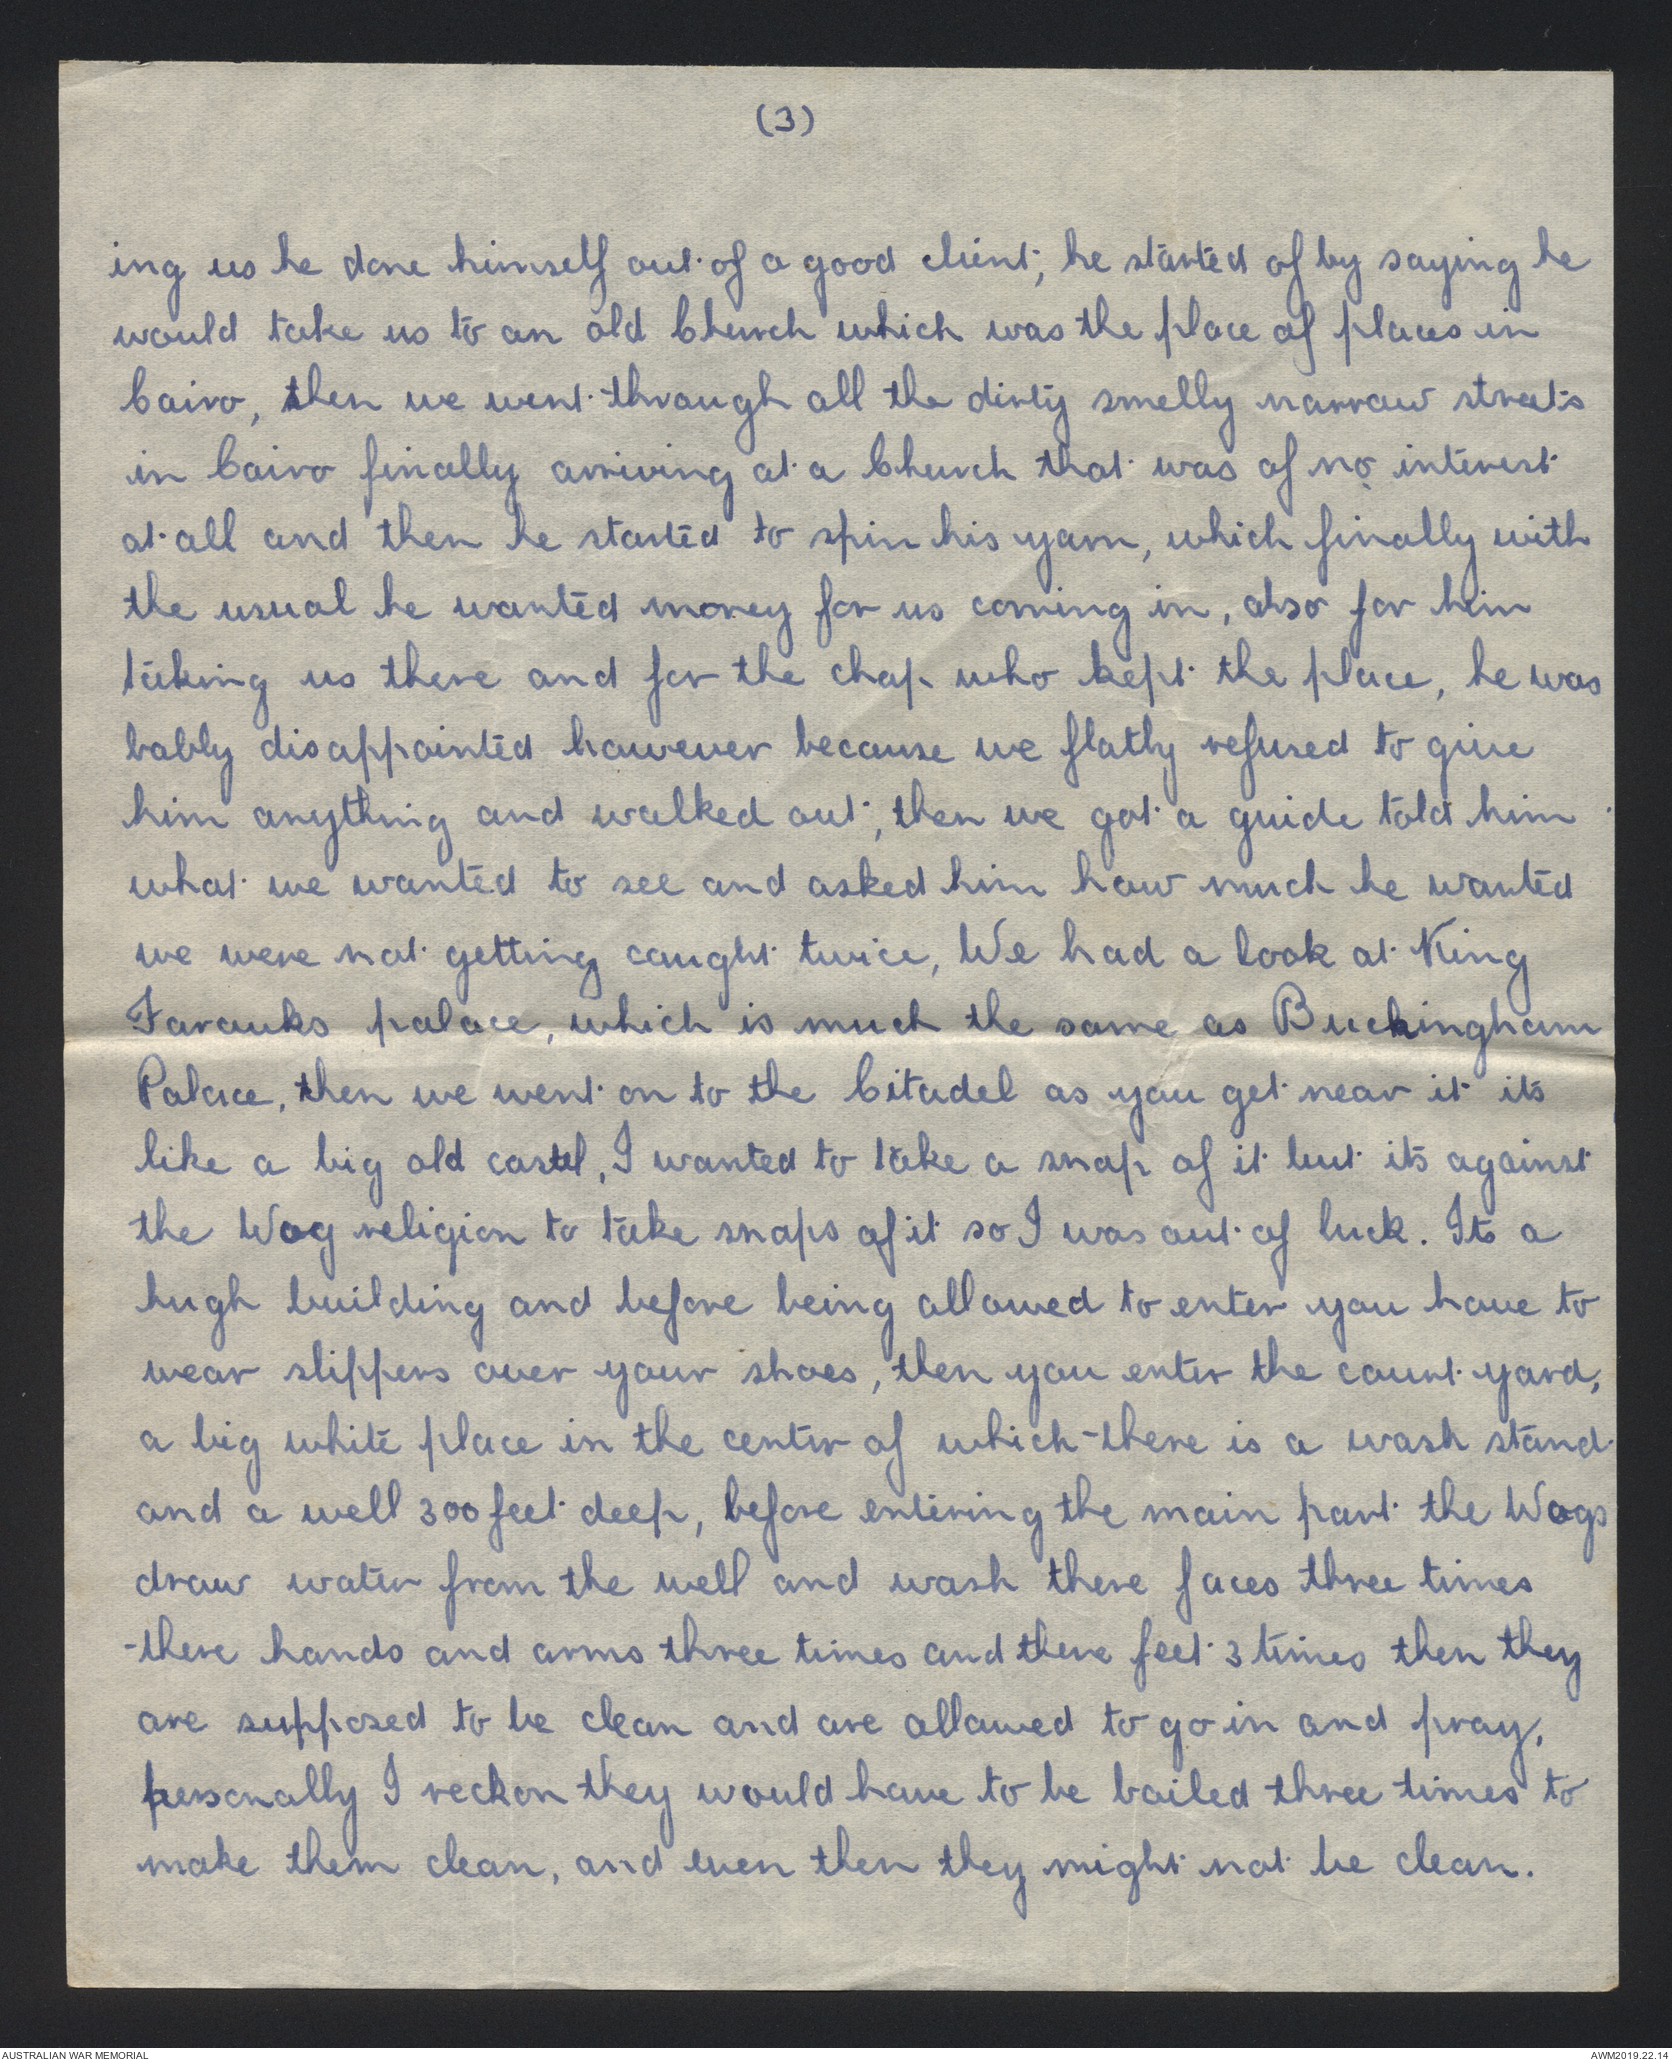 (3)
ing us he done himself out of a good client, he started of by saying he
would take us to an old Church which was the place of places in
Cairo, then we went through all the dirty smelly narrow streets
in Cairo finally arriving at a Church that was of no interest
at all and then he started to spin his yarn, which finally with
the usual he wanted money for us coming in, also for him
taking us there and for the chap who kept the place, he was
badly disappointed however because we flatly refused to give
him anything and walked out, then we got a guide told him
what we wanted to see and asked him how much he wanted
we were not getting caught twice, We had a look at King
Farouks palace, which is much the same as Buckingham
Palace, then we went on to the Citadel as you get near it its
like a big old castel, I wanted to take a snap of it but its against
the Wog religion to take snaps of it so I was out of luck. Its a
hugh building and before being allowed to enter you have to
wear slippers over your shoes, then you enter the court yard,
a big white place in the center of which there is a wash stand
and a well 300 feet deep, before entering the main part the Wogs
draw water from the well and wash there faces three times
there hands and arms three times and there feet 3 times then they
are supposed to be clean and are allowed to go in and pray,
personally I reckon they would have to be boiled three times to
make them clean, and even then they might not be clean.
AUSTRALIAN WAR MEMORIAL
AWM2019.22.14